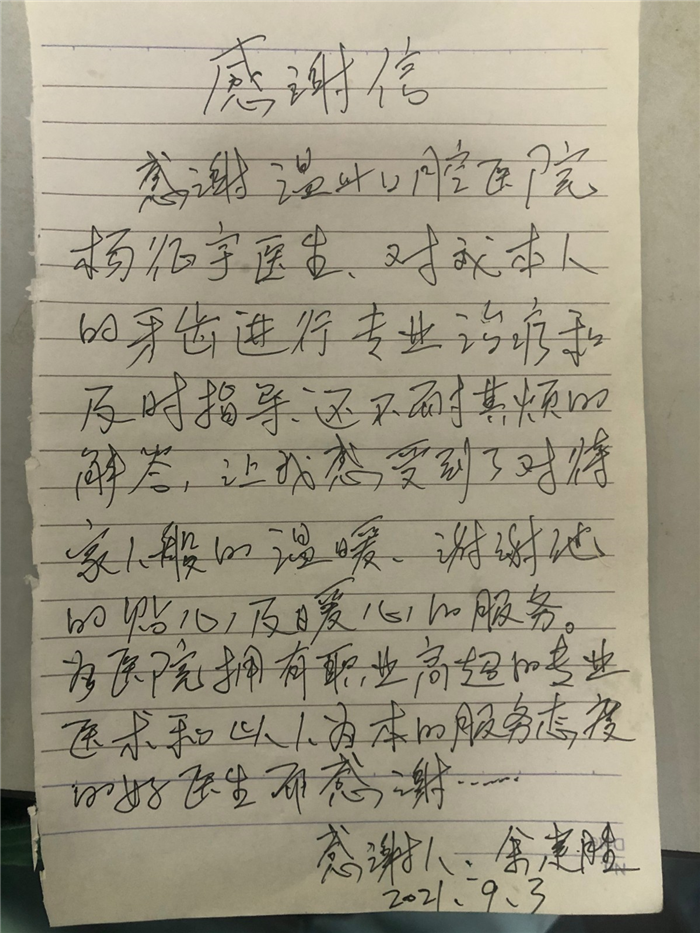 感谢信
感谢温州口腔医院
杨征宇医生、对我本人
的牙齿进行专业治疗和
及时指导、还不耐其烦的
解答,让我感受到了对待
家人般的温暖、谢谢他
的贴心,及暖心的服务。
为医院拥有职业高超的专业
医术和以人为本的服务态度
的好医生而感谢……
感谢人:
2021、9、3